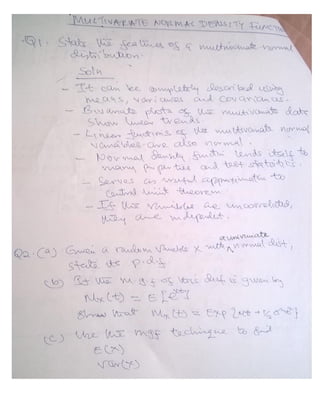 MULTIVARIATE NORMAL DENSITY FUNCTION
Q1. State the features of a multivariate normal
distribution.
Soln
- It can be completely described using
means, variances and covariances.
- Bivariate plots of the multivariate data
show linear trends
- Linear functions of the multivariate normal
variables are also normal.
- Normal density function lends itself to
many properties and test statistics.
- Serves as useful approximation to
central limit theorem.
- If the variables are uncorrelated,
they are independent.
Q2. (a) Given a random variable X with univariate normal dist,
state its p.d.f.
(b) If the m.g.f of this is given by
Mx(t) = E[e^tx]
Show that Mx(t) = Exp {
(c) Use the mgf technique to find
E(X)
Var(X)